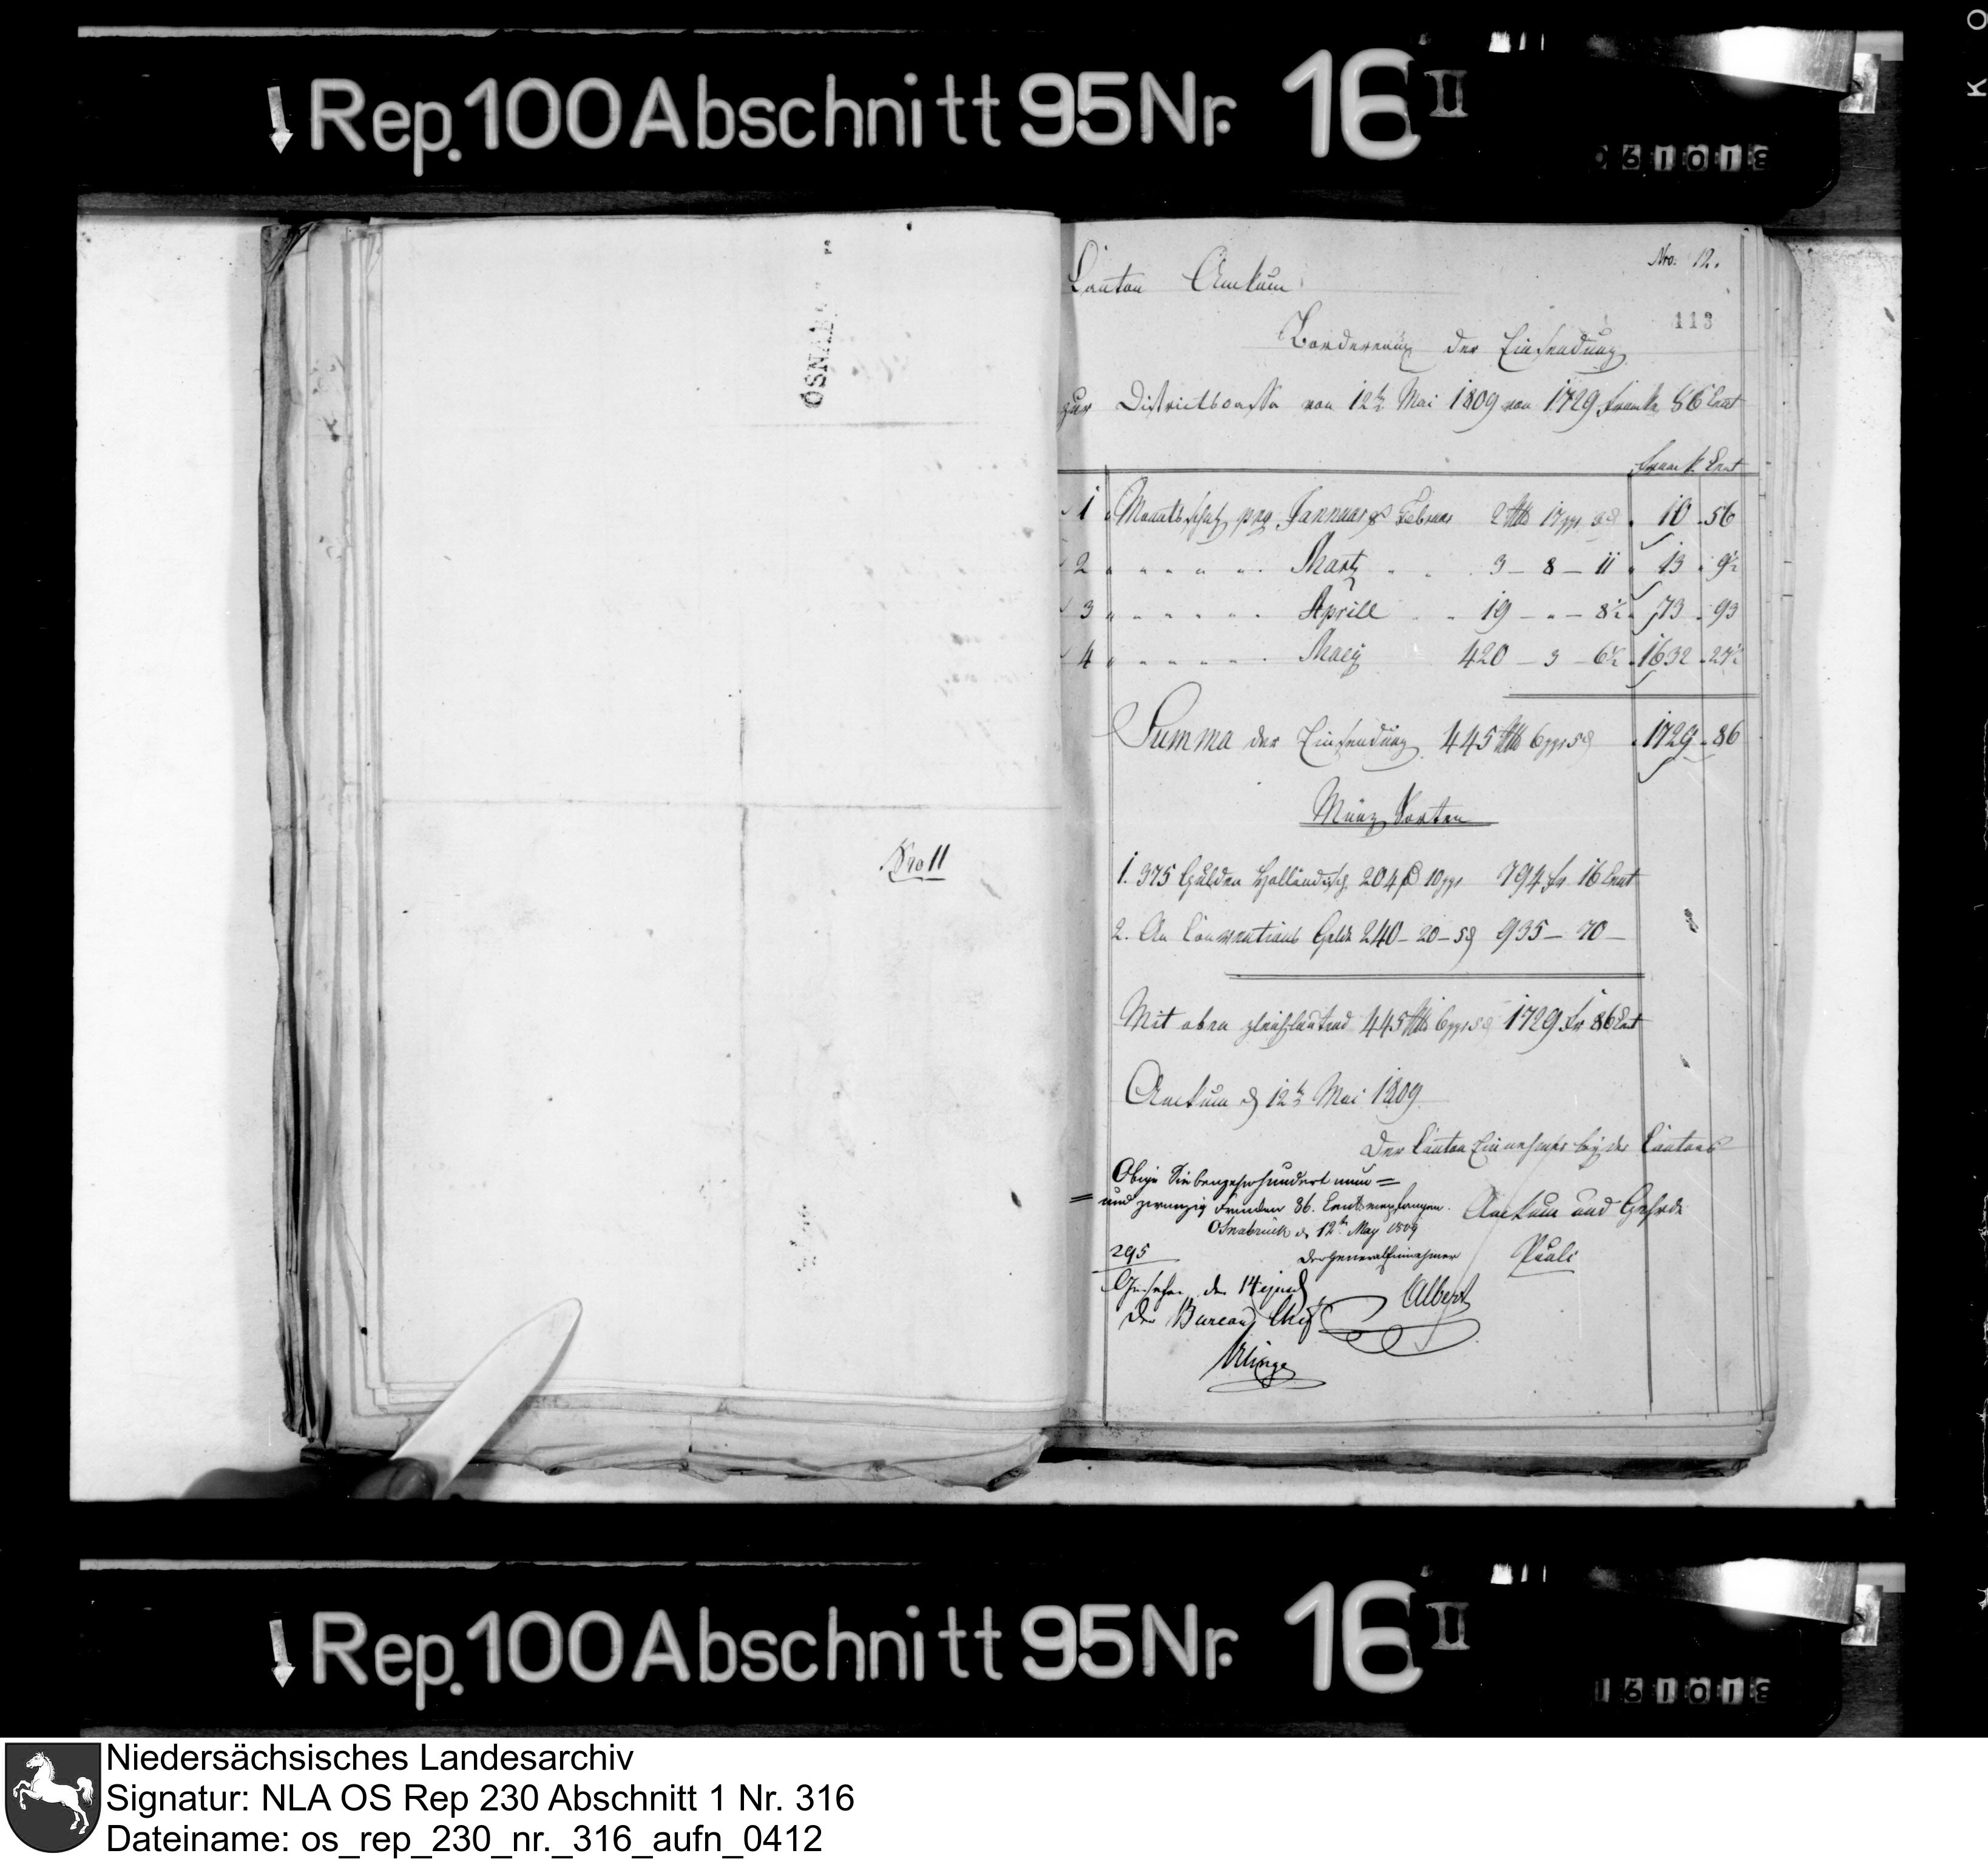 Rep. 100 Abschnitt 95 Nr. 16 II
061018
OSNAB
Nro 11
Nro: 12.
Canton Ankum
113
Bordereaux der Einsendung
zur Districtscasse von 12t Mai 1809 von 1729 Frank 86 Cent
Frank Cent
1 Monatsschatz pro Januar & Februar 2 Rth 17 ggr 10 56
2 " " " " " Martz 3 - 8 - 11 13 9½
3 " " " " " Aprill 19 - " - 8½ 73 93
4 " " " " " Maey 420 - 3 - 6½ 1632 27½
Summa der Einsendung 445 Rth 6 ggr 5 d 1729 86
Münz Sorten
1. 375 Gulden Holländisch 204 10 ggr 794 fr 16 Cent
2. An Conventions Gelde 240 - 20 - 5 d 935 - 70 -
Mit oben gleichlautend 445 Rth 6 ggr 5 d 1729 Fr 86 Cent
Ankum d 12t Mai 1809
Der Canton Einnehmer bey der Cantons
Ankum und Gehrde
Pauli
Obige Siebenzehnhundert neun =
= und zwanzig Franken 86. Cents empfangen.
Osnabrück d. 12t May 1809
Der General Einnehmer
Albert
295
Gesehen den 14 ejusd
Der Bureau Chef
Klinge
Rep. 100 Abschnitt 95 Nr. 16 II
161018
Niedersächsisches Landesarchiv
Signatur: NLA OS Rep 230 Abschnitt 1 Nr. 316
Dateiname: os_rep_230_nr._316_aufn_0412